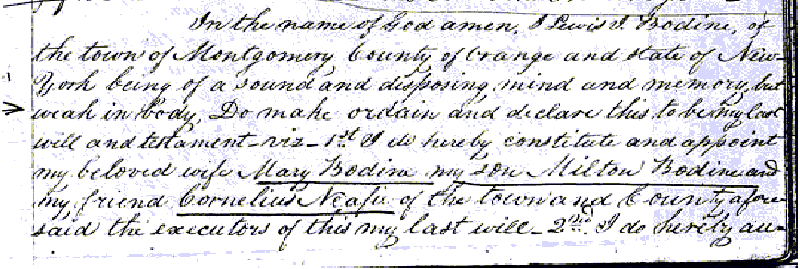 In the name of God amen, I Lewis J. Bodine, of
the town of Montgomery County of Orange and state of New-
York being of a sound and disposing, mind and memory, but
weak in body, Do make ordain and declare this to be my last
will and testament - viz - 1st I do hereby constitute and appoint
my beloved wife Mary Bodine my son Milton Bodine and
my friend Cornelius Neafie of the town and County afore
said the executors of this my last will - 2nd. I do hereby au-